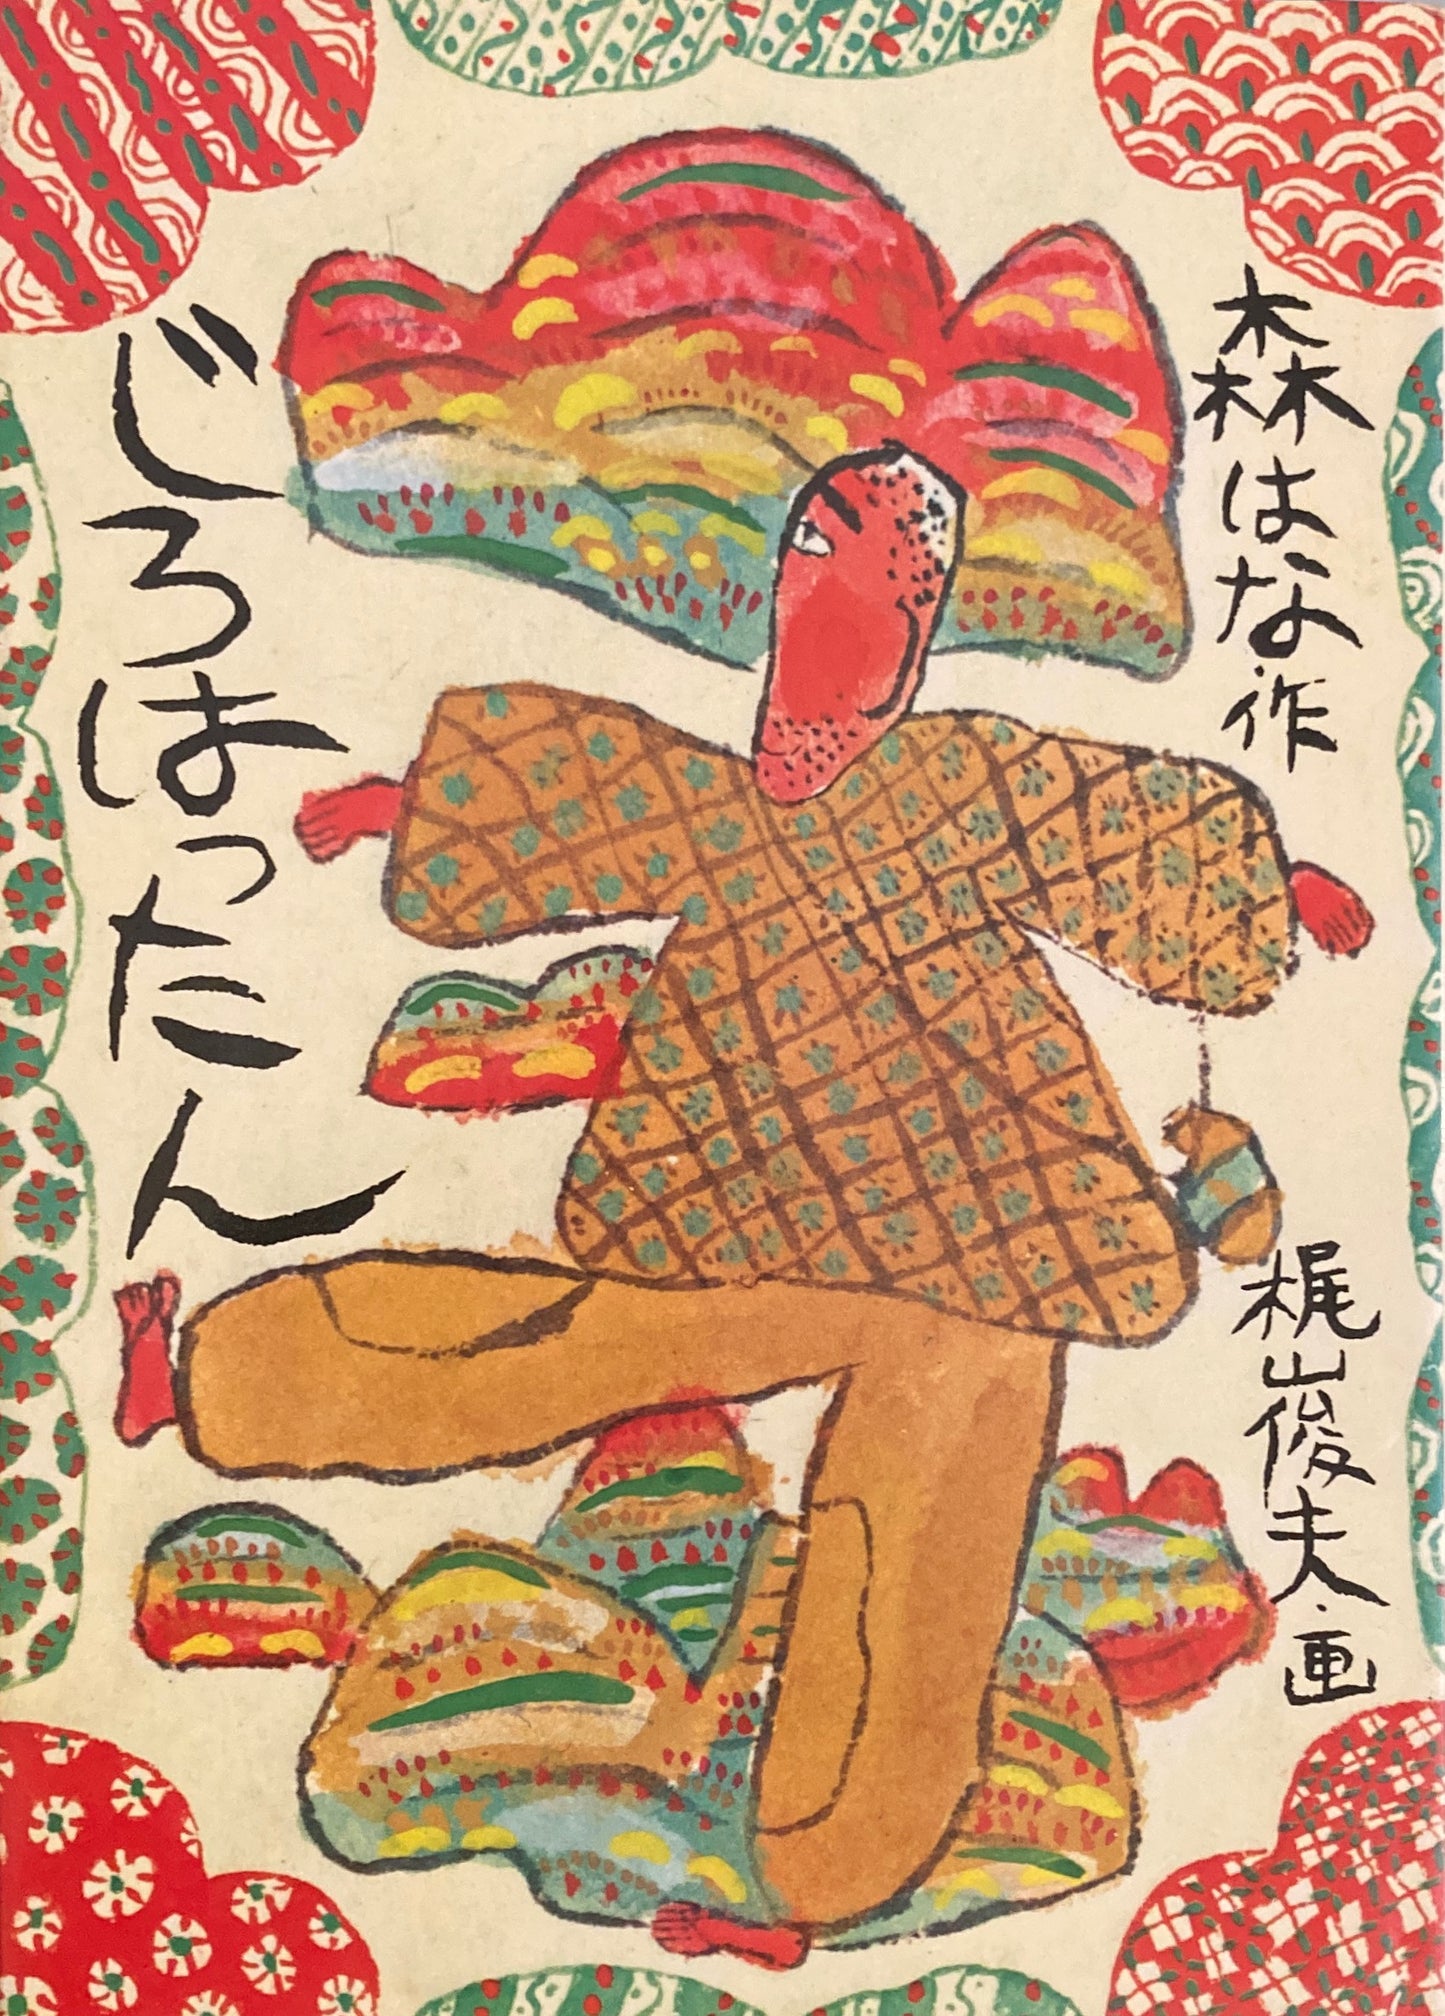 森はな・作
梶山俊夫・画
じろはったん